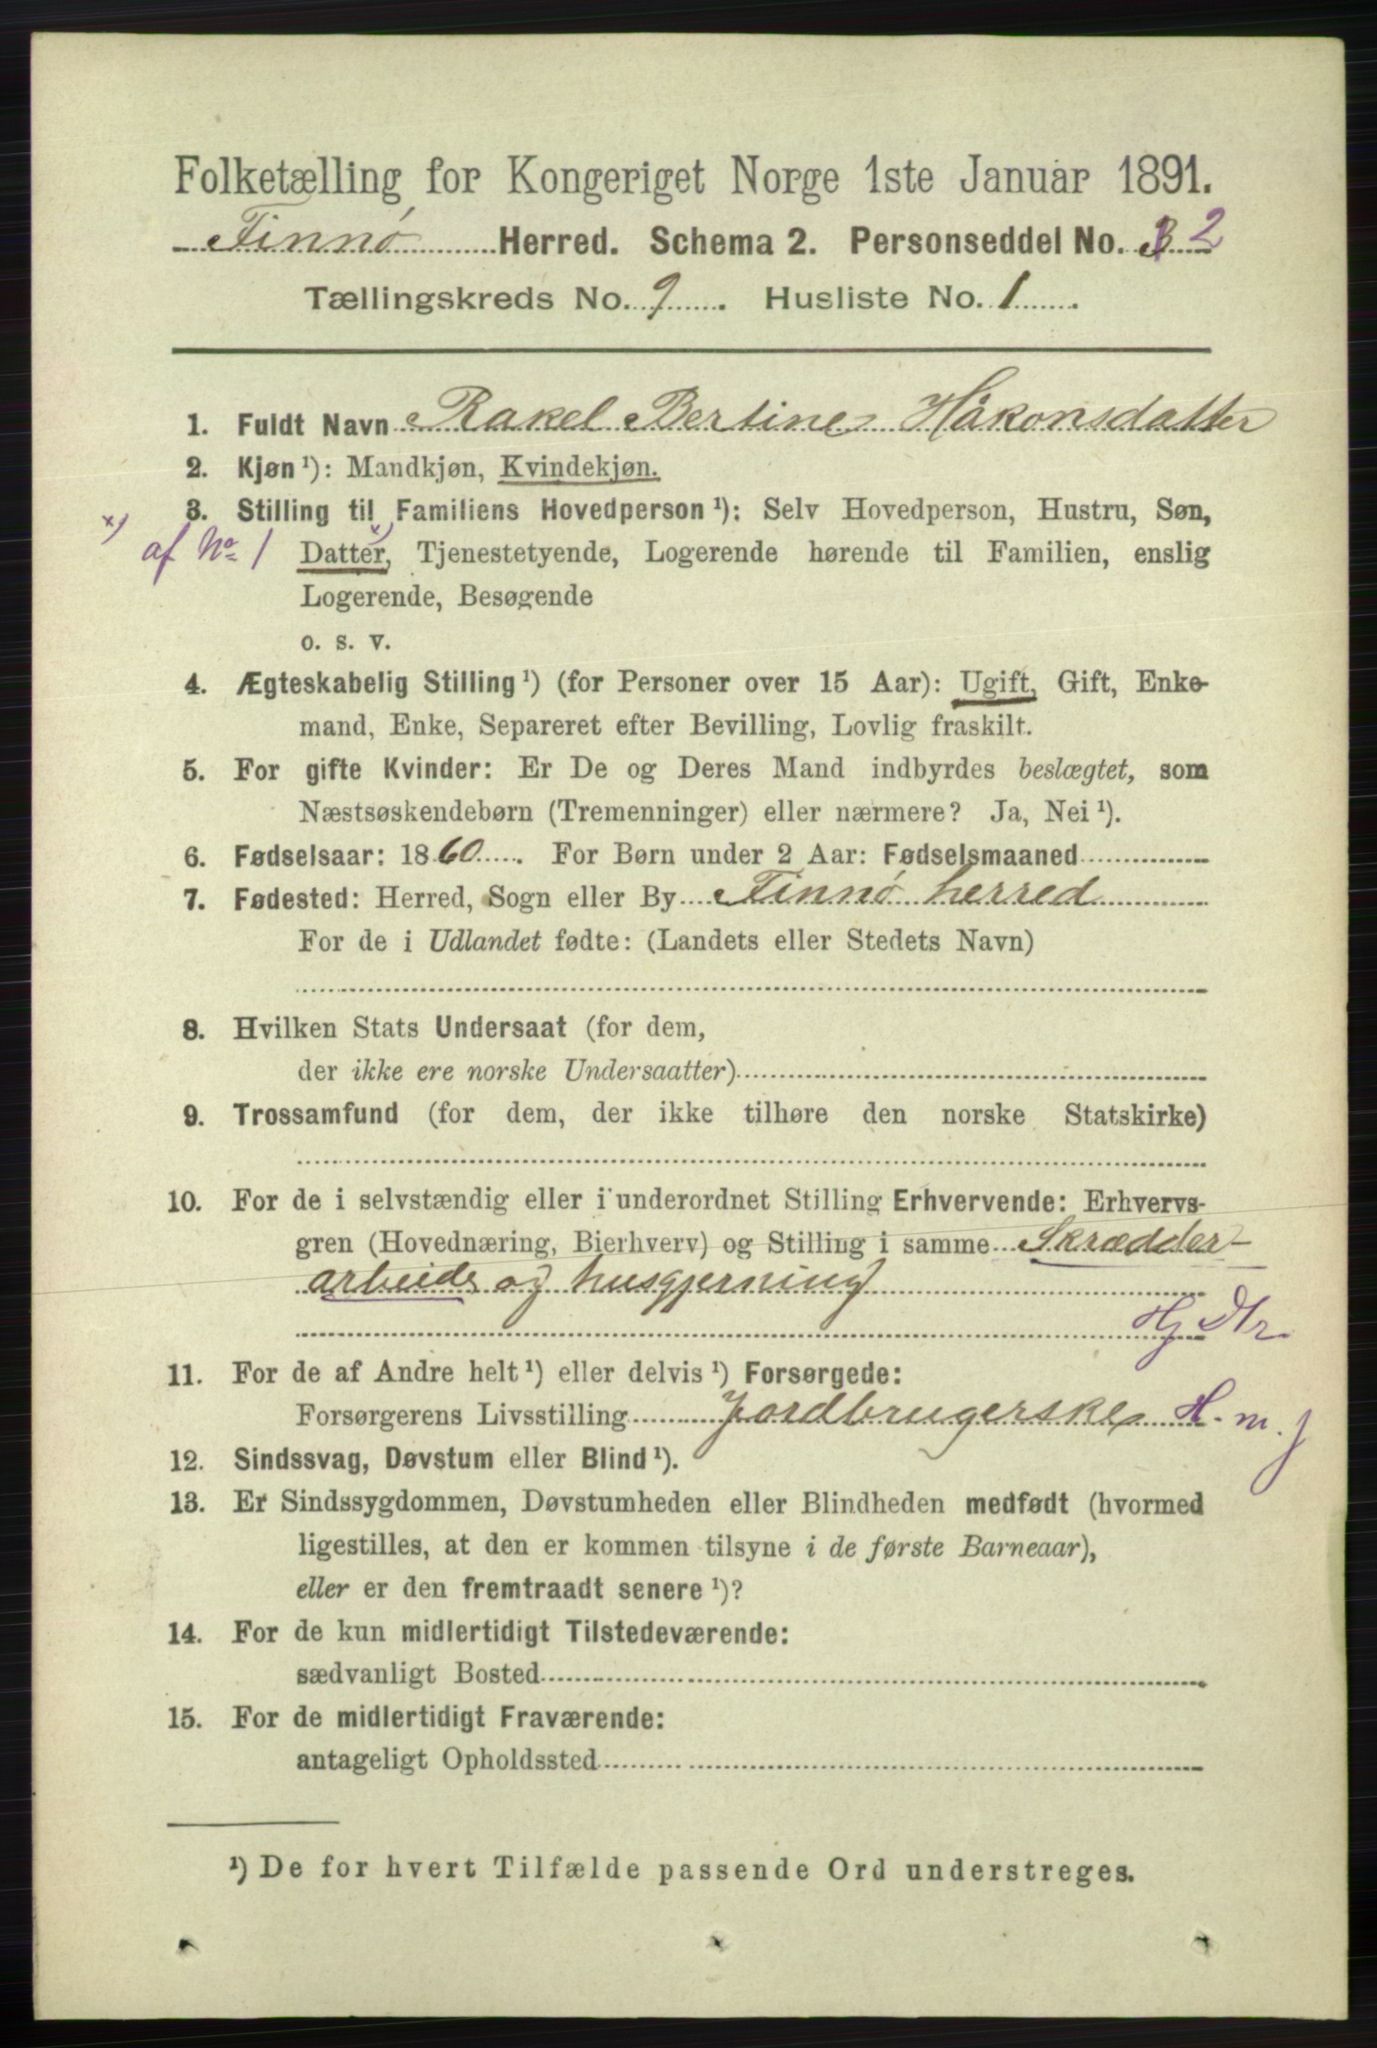 Folketælling for Kongeriget Norge 1ste Januar 1891.
Finnø Herred. Schema 2. Personseddel No. 2
Tællingskreds No. 9. Husliste No. 1.
1. Fuldt Navn Rakel Bertine Håkonsdatter
2. Kjøn ¹): Mandkjøn, Kvindekjøn.
3. Stilling til Familiens Hovedperson ¹): Selv Hovedperson, Hustru, Søn,
x) af No 1 Datter, x) Tjenestetyende, Logerende hørende til Familien, enslig
Logerende, Besøgende
o. s. v.
4. Ægteskabelig Stilling ¹) (for Personer over 15 Aar): Ugift, Gift, Enke-
mand, Enke, Separeret efter Bevilling, Lovlig fraskilt.
5. For gifte Kvinder: Er De og Deres Mand indbyrdes beslægtet, som
Næstsøskendebørn (Tremenninger) eller nærmere? Ja, Nei ¹).
6. Fødselsaar: 1860. For Børn under 2 Aar: Fødselsmaaned
7. Fødested: Herred, Sogn eller By Finnø herred
For de i Udlandet fødte: (Landets eller Stedets Navn)
8. Hvilken Stats Undersaat (for dem,
der ikke ere norske Undersaatter)
9. Trossamfund (for dem, der ikke tilhøre den norske Statskirke)
10. For de i selvstændig eller i underordnet Stilling Erhvervende: Erhvervs-
gren (Hovednæring, Bierhverv) og Stilling i samme Skrædder-
arbeide og husgjerning
Hj Dtr.
11. For de af Andre helt ¹) eller delvis ¹) Forsørgede:
Forsørgerens Livsstilling Jordbrugerske H. m. j
12. Sindssvag, Døvstum eller Blind ¹).
13. Er Sindssygdommen, Døvstumheden eller Blindheden medfødt (hvormed
ligestilles, at den er kommen tilsyne i de første Barneaar),
eller er den fremtraadt senere ¹)?
14. For de kun midlertidigt Tilstedeværende:
sædvanligt Bosted
15. For de midlertidigt Fraværende:
antageligt Opholdssted
¹) De for hvert Tilfælde passende Ord understreges.